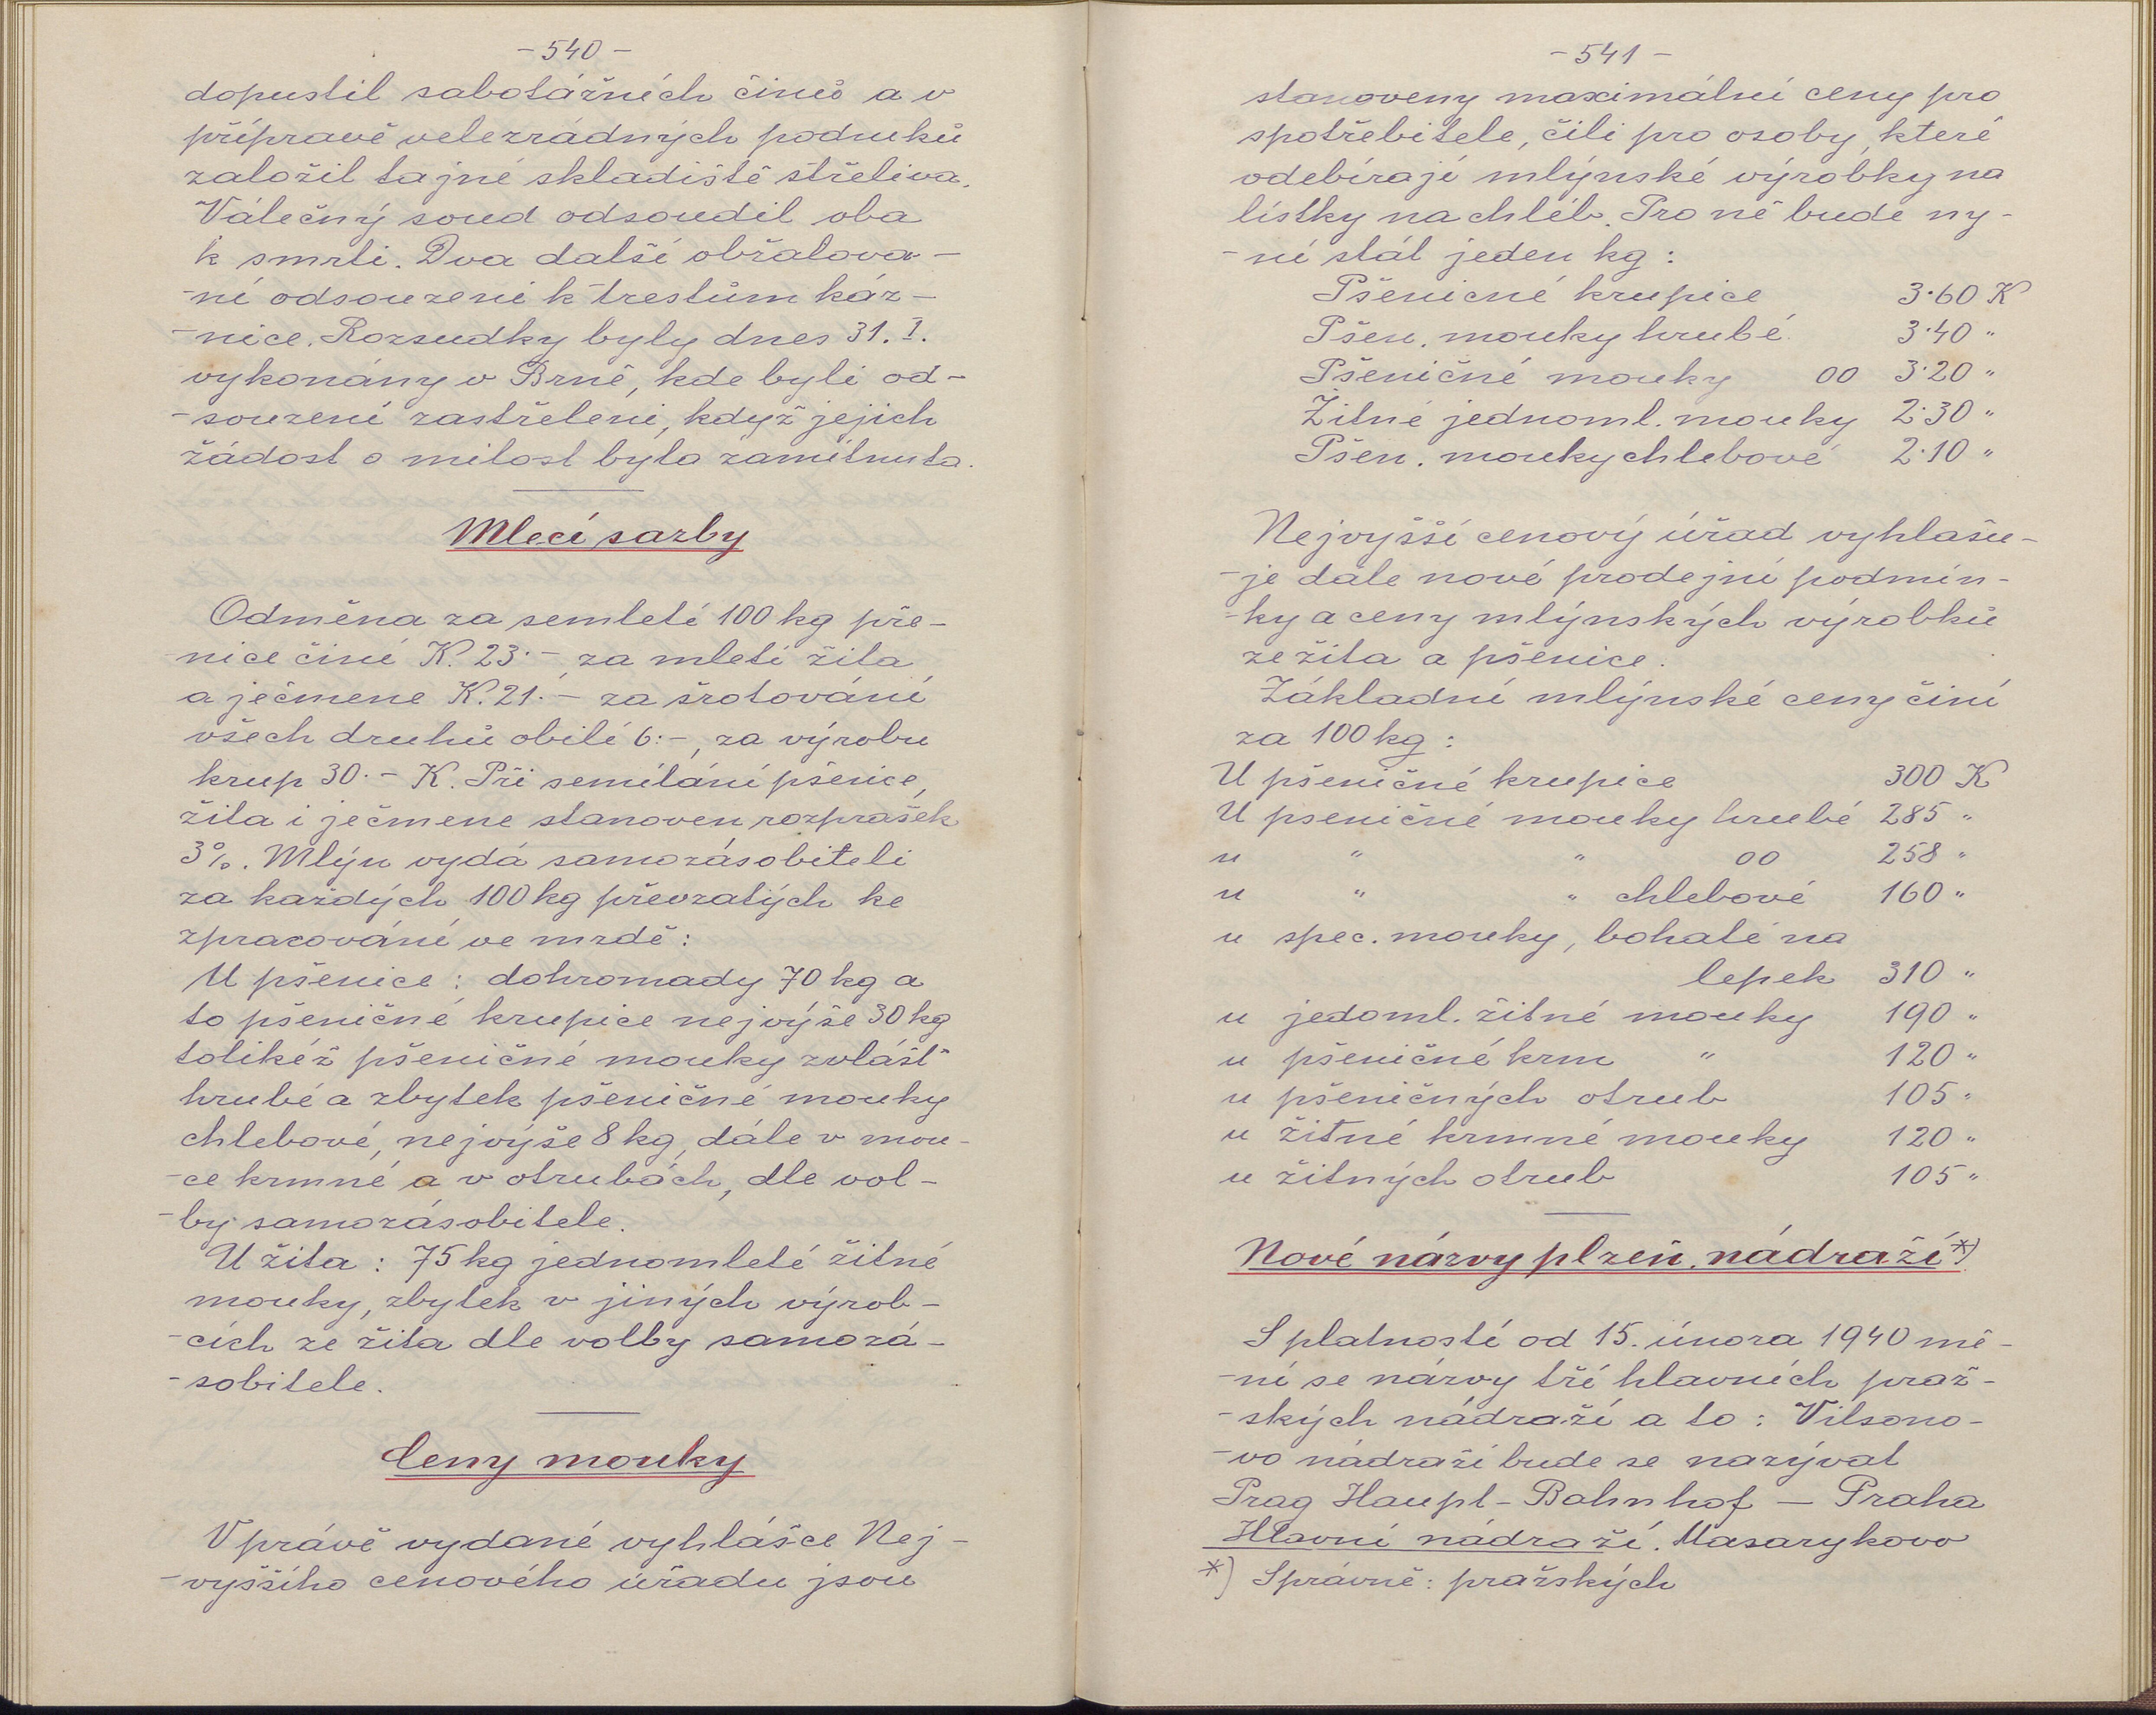 -540-
dopustil sabotážních činů a v
přípravě velezrádných podniků
založil tajné skladiště střeliva.
Válečný soud odsoudil oba
k smrti. Dva další obžalova-
-ní odsouzeni k trestům káz-
-nice. Rozsudky byly dnes 31. I.
vykonány v Brně, kde byli od-
-souzení zastřeleni, když jejich
žádost o milost byla zamítnuta.
Mlecí sazby
Odměna za semletí 100 kg pše-
nice činí K. 23·-, za mletí žita
a ječmene K. 21.- za šrotování
všech druhů obilí 6:-, za výrobu
krup 30.- K. Při semílání pšenice,
žita i ječmene stanoven rozprašek
3%. Mlýn vydá samozásobiteli
za každých 100 kg převzatých ke
zpracování ve mzdě:
U pšenice: dohromady 70 kg a
to pšeničné krupice nejvýše 30 kg
tolikéž pšeničné mouky zvlášť
hrubé a zbytek pšeničné mouky
chlebové, nejvýše 8 kg, dále v mou-
-ce krmné a v otrubách, dle vol-
-by samozásobitele.
U žita: 75 kg jednomleté žitné
mouky, zbytek v jiných výrob-
-cích ze žita dle volby samozá-
-sobitele.
Ceny mouky
V právě vydané vyhlášce Nej-
-vyššího cenového úřadu jsou
-541-
stanoveny maximální ceny pro
spotřebitele, čili pro osoby, které
odebírají mlýnské výrobky na
lístky na chléb. Pro ně bude ny-
-ní stát jeden kg:
Pšenicné krupice 3·60 K
Pšen. mouky hrubé 3·40 "
Pšeničné mouky 00 3·20 "
Žitné jednoml. mouky 2·30 "
Pšen. mouky chlebové 2·10 "
Nejvyšší cenový úřad vyhlašu-
-je dále nové prodejní podmín-
-ky a ceny mlýnských výrobků
ze žita a pšenice.
Základní mlýnské ceny činí
za 100 kg:
U pšeničné krupice 300 K
U pseničné mouky hrubé 285 "
u " " 00 258 "
u " " chlebové 160 "
u spec. mouky, bohaté na
lepek 310 "
u jedoml. žitné mouky 190 "
u pšeničné krm " 120 "
u pšeničných otrub 105 "
u žitné krmné mouky 120 "
u žitných otrub 105 "
Nové názvy plzeň. nádraží *)
S platností od 15. února 1940 mě-
-ní se názvy tří hlavních praž-
-ských nádraží a to: Vilsono-
-vo nádraží bude se nazývat
Prag Haupt-Bahnhof – Praha
Hlavní nádraží. Masarykovo
*) Správně: pražských